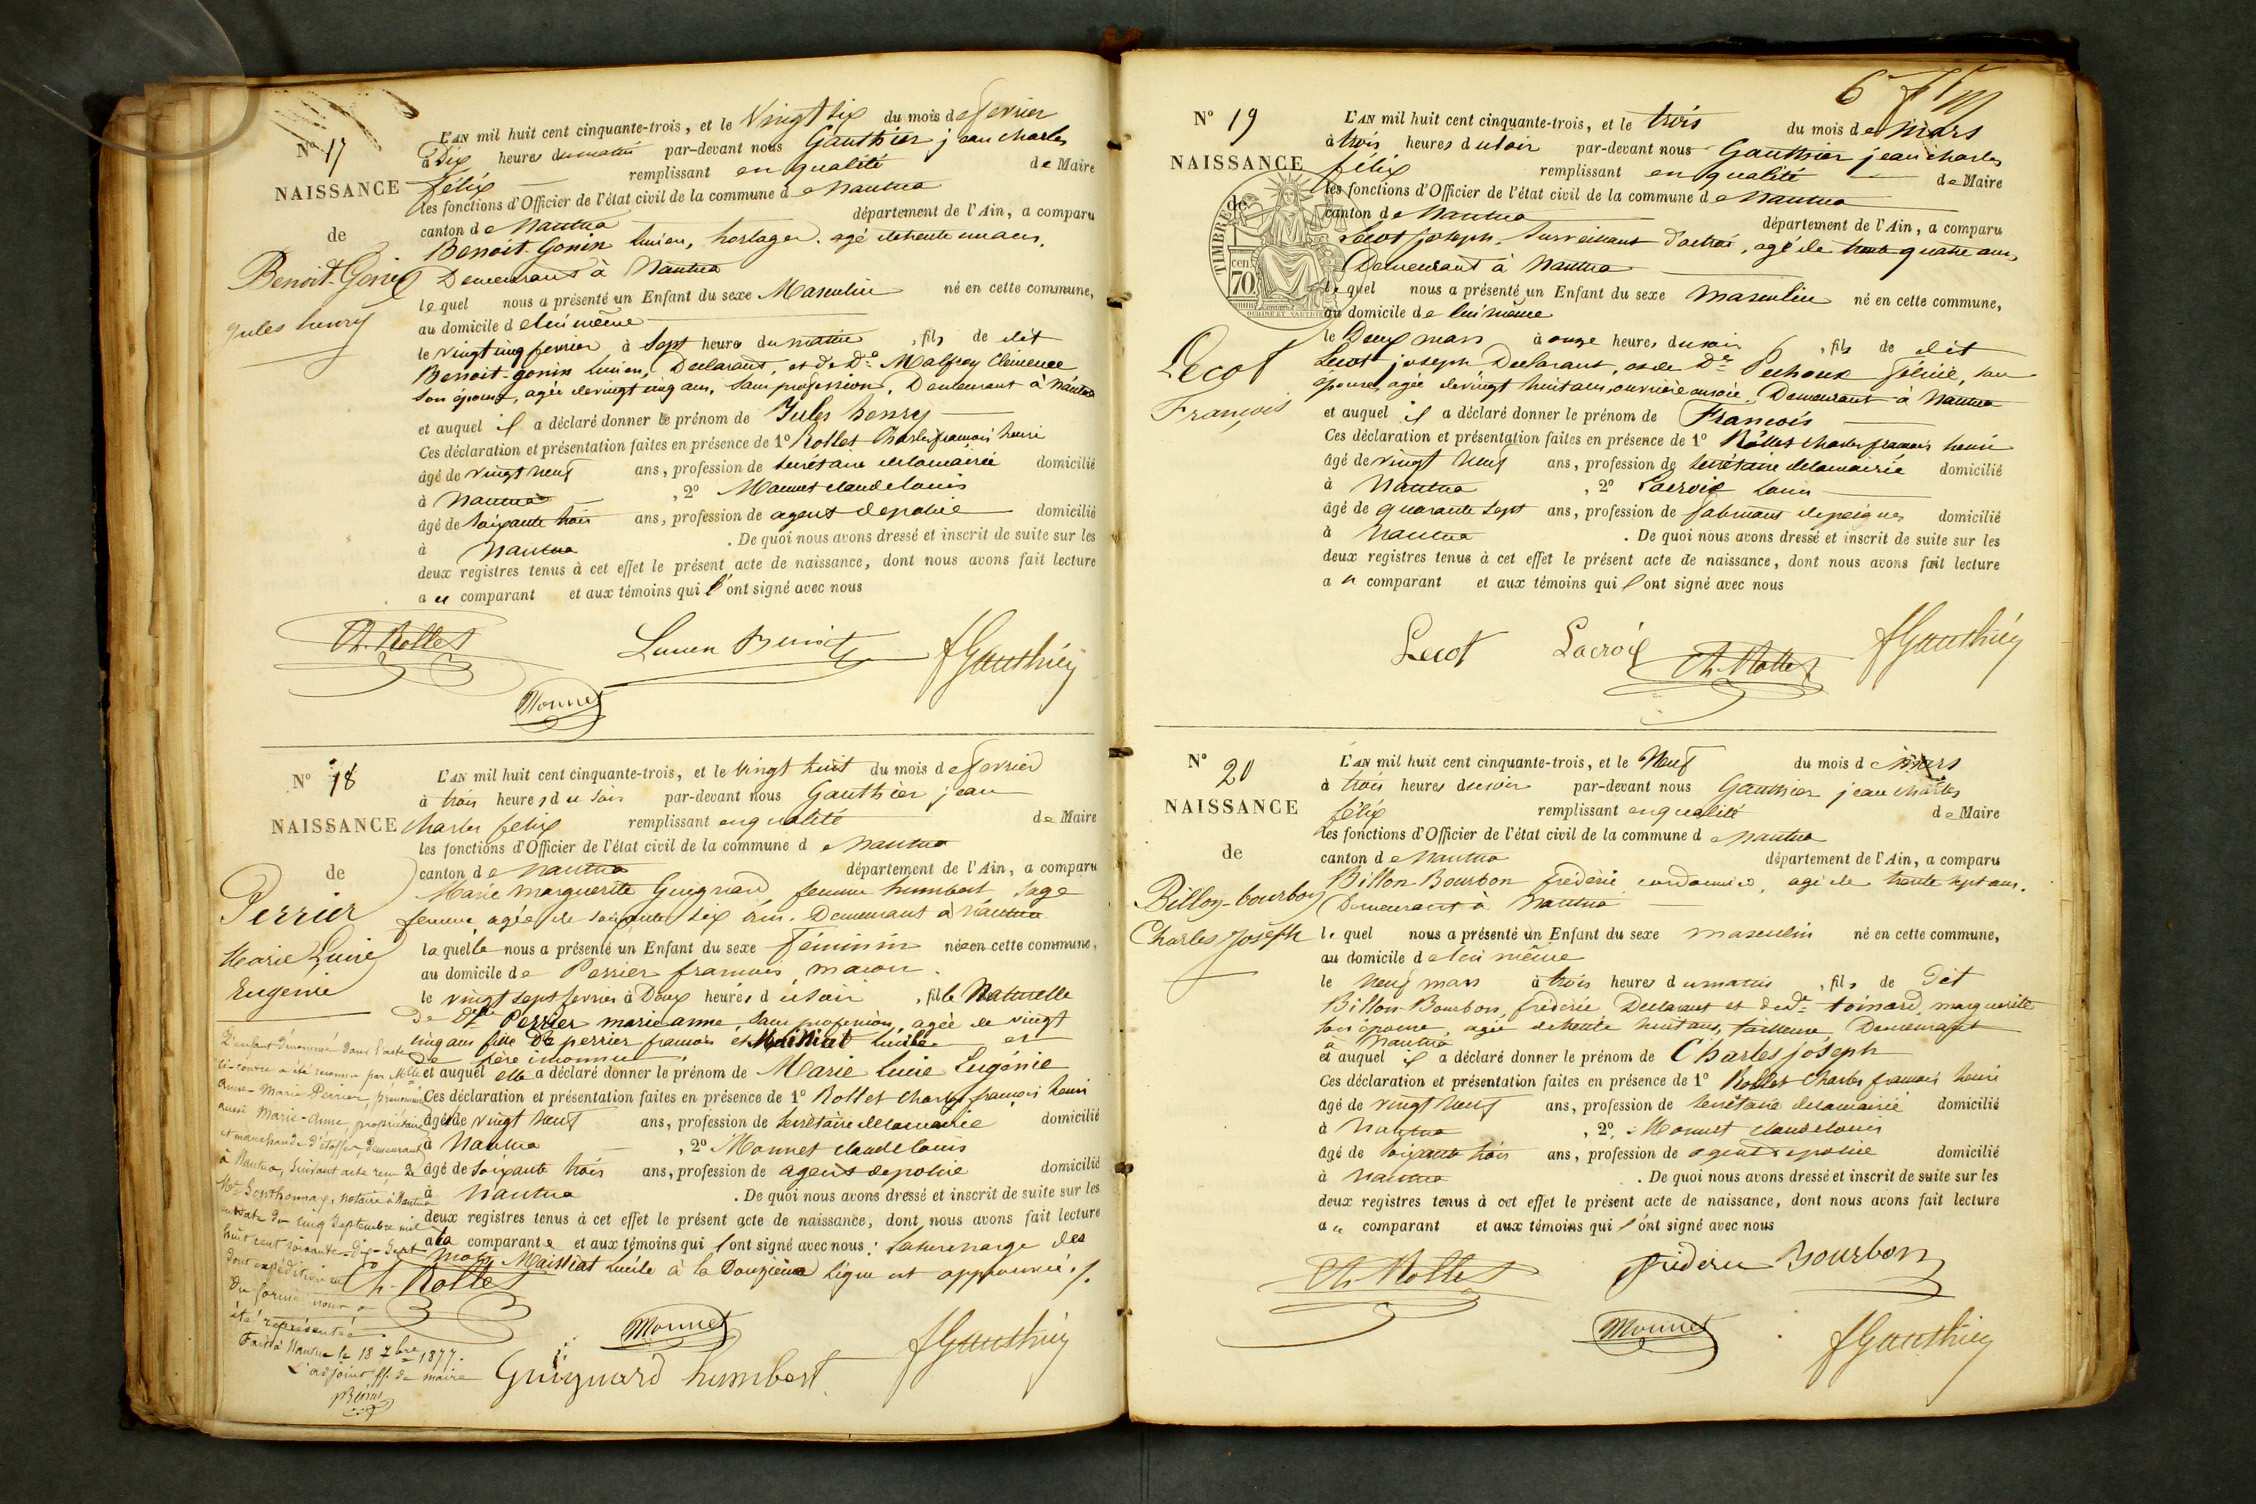 N° 17
NAISSANCE
de
Benoit-Gonin
Jules henry
L'AN mil huit cent cinquante-trois, et le Vingt six du mois de fevrier
à Dix heures du matin par-devant nous Gauthier jean charles
félix remplissant en qualité de Maire
les fonctions d'Officier de l'état civil de la commune de Nantua
canton de Nantua département de l'Ain, a comparu
Benoit-Gonin lucien, horloger, agé de trente un ans,
Demeurant à Nantua
lequel nous a présenté un Enfant du sexe Masculin né en cette commune,
au domicile de lui même
le vingt cinq fevrier à sept heures du matin, fils de dit
Benoit-gonin lucien, Declarant, et de De Malfroy Clémence
son épouse, agée de vingt cinq ans, sans profession, Demeurant à Nantua
et auquel il a déclaré donner le prénom de Jules henry
Ces déclaration et présentation faites en présence de 1° Rollet Charles françois henri
âgé de vingt neuf ans, profession de secrétaire de la mairie domicilié
à Nantua, 2° Monnet claude louis
âgé de soixante trois ans, profession de agent de police domicilié
à Nantua. De quoi nous avons dressé et inscrit de suite sur les
deux registres tenus à cet effet le présent acte de naissance, dont nous avons fait lecture
au comparant et aux témoins qui l'ont signé avec nous
Ch. Rollet Lucien Benoit fGauthier
Monnet
N° 18
NAISSANCE
de
Perrier
Marie Lucie
Eugénie
L'AN mil huit cent cinquante-trois, et le vingt huit du mois de fevrier
à trois heures du soir par-devant nous Gauthier jean
charles félix remplissant en qualité de Maire
les fonctions d'Officier de l'état civil de la commune de Nantua
canton de Nantua département de l'Ain, a comparu
Marie marguerite Guignard femme humbert sage
femme agée de soixante six ans. Demeurant à Nantua
laquelle nous a présenté un Enfant du sexe féminin née en cette commune,
au domicile de Perrier françois maçon.
le vingt sept fevrier à Deux heures du soir, fille Naturelle
De Dlle Perrier marie anne sans profession, agée de vingt
cinq ans fille De perrier françois et Maissiat lucile et
de père inconnu.
et auquel elle a déclaré donner le prénom de Marie Lucie Eugénie
Ces déclaration et présentation faites en présence de 1° Rollet Charles françois henri
âgé de vingt neuf ans, profession de secrétaire de la mairie domicilié
à Nantua, 2° Monnet claude louis
âgé de soixante trois ans, profession de agent de police domicilié
à Nantua. De quoi nous avons dressé et inscrit de suite sur les
deux registres tenus à cet effet le présent acte de naissance, dont nous avons fait lecture
a la comparante et aux témoins qui l'ont signé avec nous; la surcharge des
mots Maissiat Lucile à la Douzième ligne est approuvée ./.
Ch. Rollet
Monnet fGauthier
Guignard humbert
L'enfant dénommé dans l'acte
ci-contre a été reconnu par Mlle
Anne-Marie Perrier, prénommée
aussi Marie-Anne, propriétaire
et marchande d'étoffes, demeurant
à Nantua, suivant acte reçu
Me Gonthonnay, notaire à Nantua
en date du cinq Septembre mil
huit cent soixante-dix-sept
dont expédition en
due forme nous a
été représentée.
Fait à Nantua le 18 7bre 1877.
L'adjoint ff. de maire
N° 19
NAISSANCE
de
TIMBRE
70
cen.
Lecot
François
L'AN mil huit cent cinquante-trois, et le trois du mois de Mars
à trois heures du soir par-devant nous Gauthier jean charles
félix remplissant en qualité de Maire
les fonctions d'Officier de l'état civil de la commune de Nantua
canton de Nantua département de l'Ain, a comparu
Lecot joseph, surveillant d'octroi, agé de trente quatre ans,
Demeurant à Nantua
lequel nous a présenté un Enfant du sexe masculin né en cette commune,
au domicile de lui même
le Deux mars à onze heures du soir, fils de dit
Lecot joseph Declarant, et de De Pechoux félicie, son
épouse, agée de vingt huit ans, ouvrière en soie, Demeurant à Nantua
et auquel il a déclaré donner le prénom de François
Ces déclaration et présentation faites en présence de 1° Rollet charles françois henri
âgé de vingt neuf ans, profession de secrétaire de la mairie domicilié
à Nantua, 2° Lacroix Louis
âgé de quarante sept ans, profession de fabricant de peignes domicilié
à Nantua. De quoi nous avons dressé et inscrit de suite sur les
deux registres tenus à cet effet le présent acte de naissance, dont nous avons fait lecture
au comparant et aux témoins qui l'ont signé avec nous
Lecot Lacroix Ch. Rollet fGauthier
N° 20
NAISSANCE
de
Billon-bourbon
Charles Joseph
L'AN mil huit cent cinquante-trois, et le Neuf du mois de mars
à trois heures du soir par-devant nous Gauthier jean charles
félix remplissant en qualité de Maire
les fonctions d'Officier de l'état civil de la commune de Nantua
canton de Nantua département de l'Ain, a comparu
Billon-Bourbon frédéric cordonnier, agé de trente sept ans.
Demeurant à Nantua
lequel nous a présenté un Enfant du sexe masculin né en cette commune,
au domicile de lui même
le neuf mars à trois heures du matin, fils de dit
Billon-Bourbon, frédéric Declarant et de De toinard marguerite
son épouse, agée de trente huit ans, tailleuse, Demeurant
à Nantua
et auquel il a déclaré donner le prénom de Charles joseph
Ces déclaration et présentation faites en présence de 1° Rollet Charles françois henri
âgé de vingt neuf ans, profession de secrétaire de la mairie domicilié
à Nantua, 2° Monnet claude louis
âgé de soixante trois ans, profession de agent de police domicilié
à Nantua. De quoi nous avons dressé et inscrit de suite sur les
deux registres tenus à cet effet le présent acte de naissance, dont nous avons fait lecture
au comparant et aux témoins qui l'ont signé avec nous
Ch. Rollet frédéric Bourbon
Monnet fGauthier